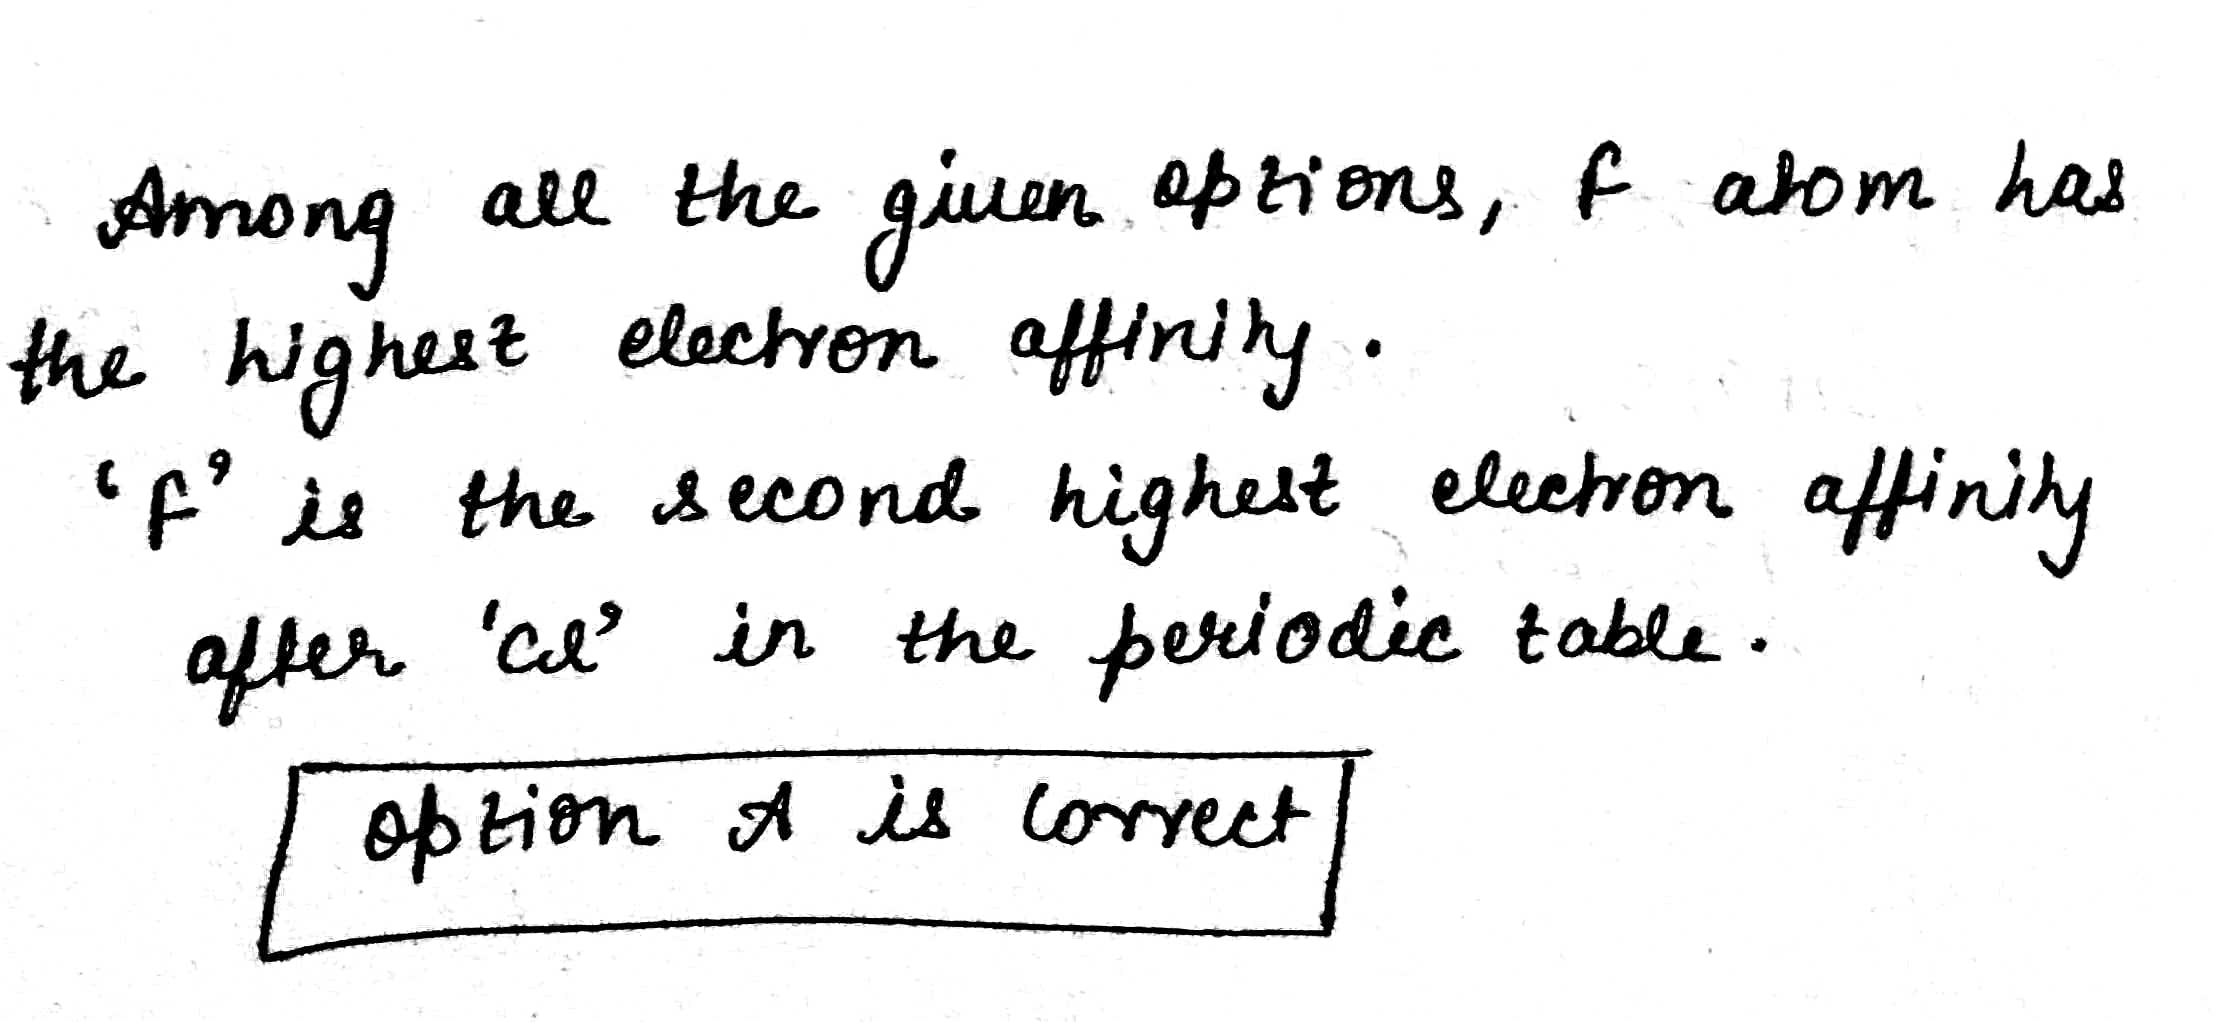 Among all the given options, F atom has
the highest electron affinity.
'F' is the second highest electron affinity
after 'Cl' in the periodic table.
option A is correct